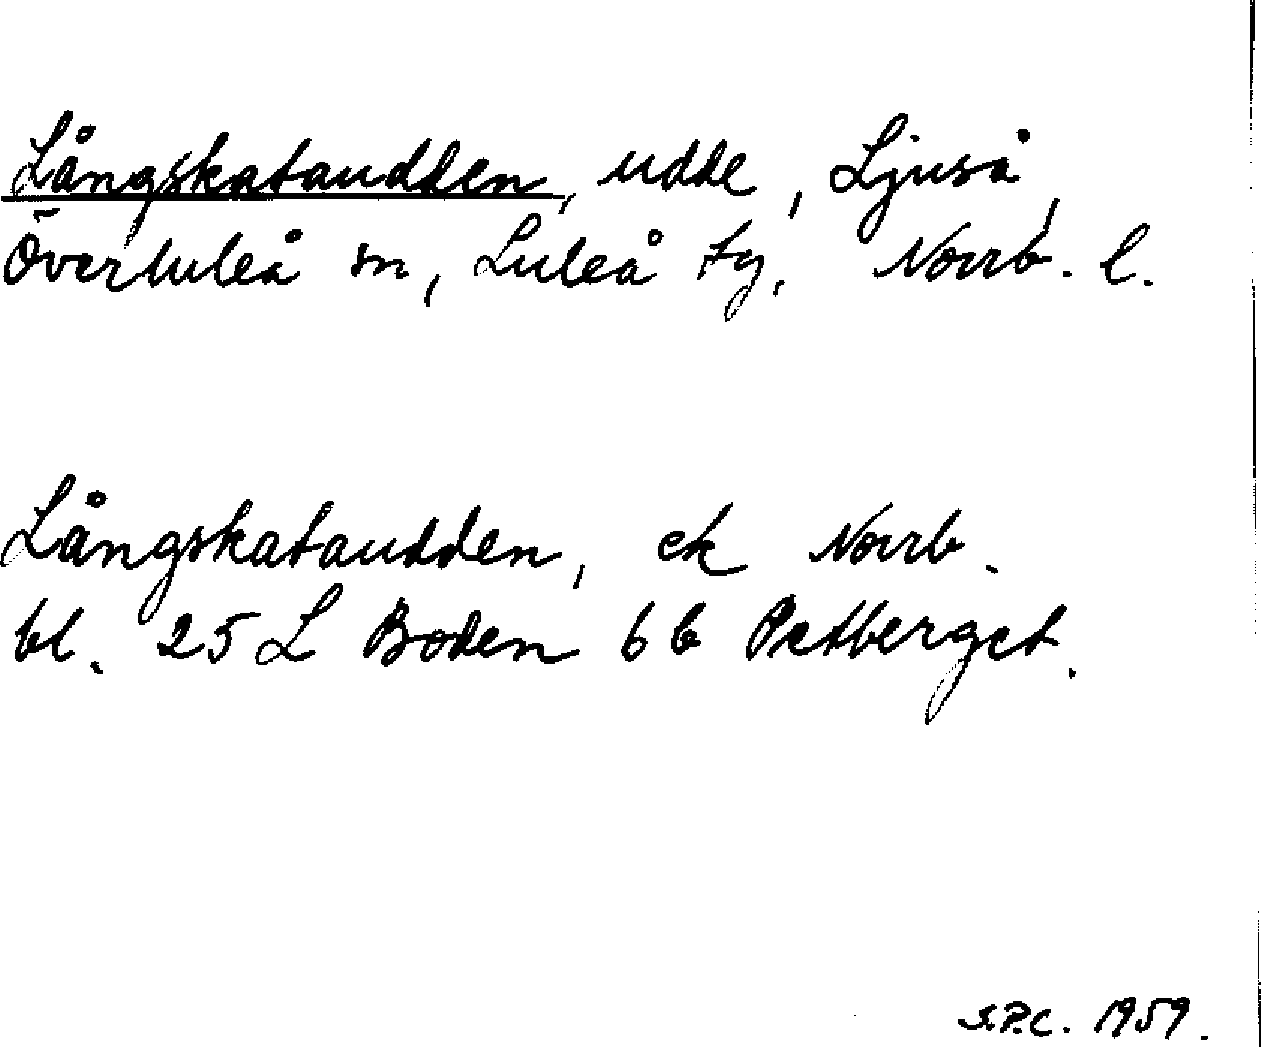 Långskataudden, udde, Ljuså,
Överluleå sn, Luleå tg, Norrb. l.
Långskataudden, ek Norrb.
bl. 25 L Boden 6b Petberget.
S.P.C. 1959.